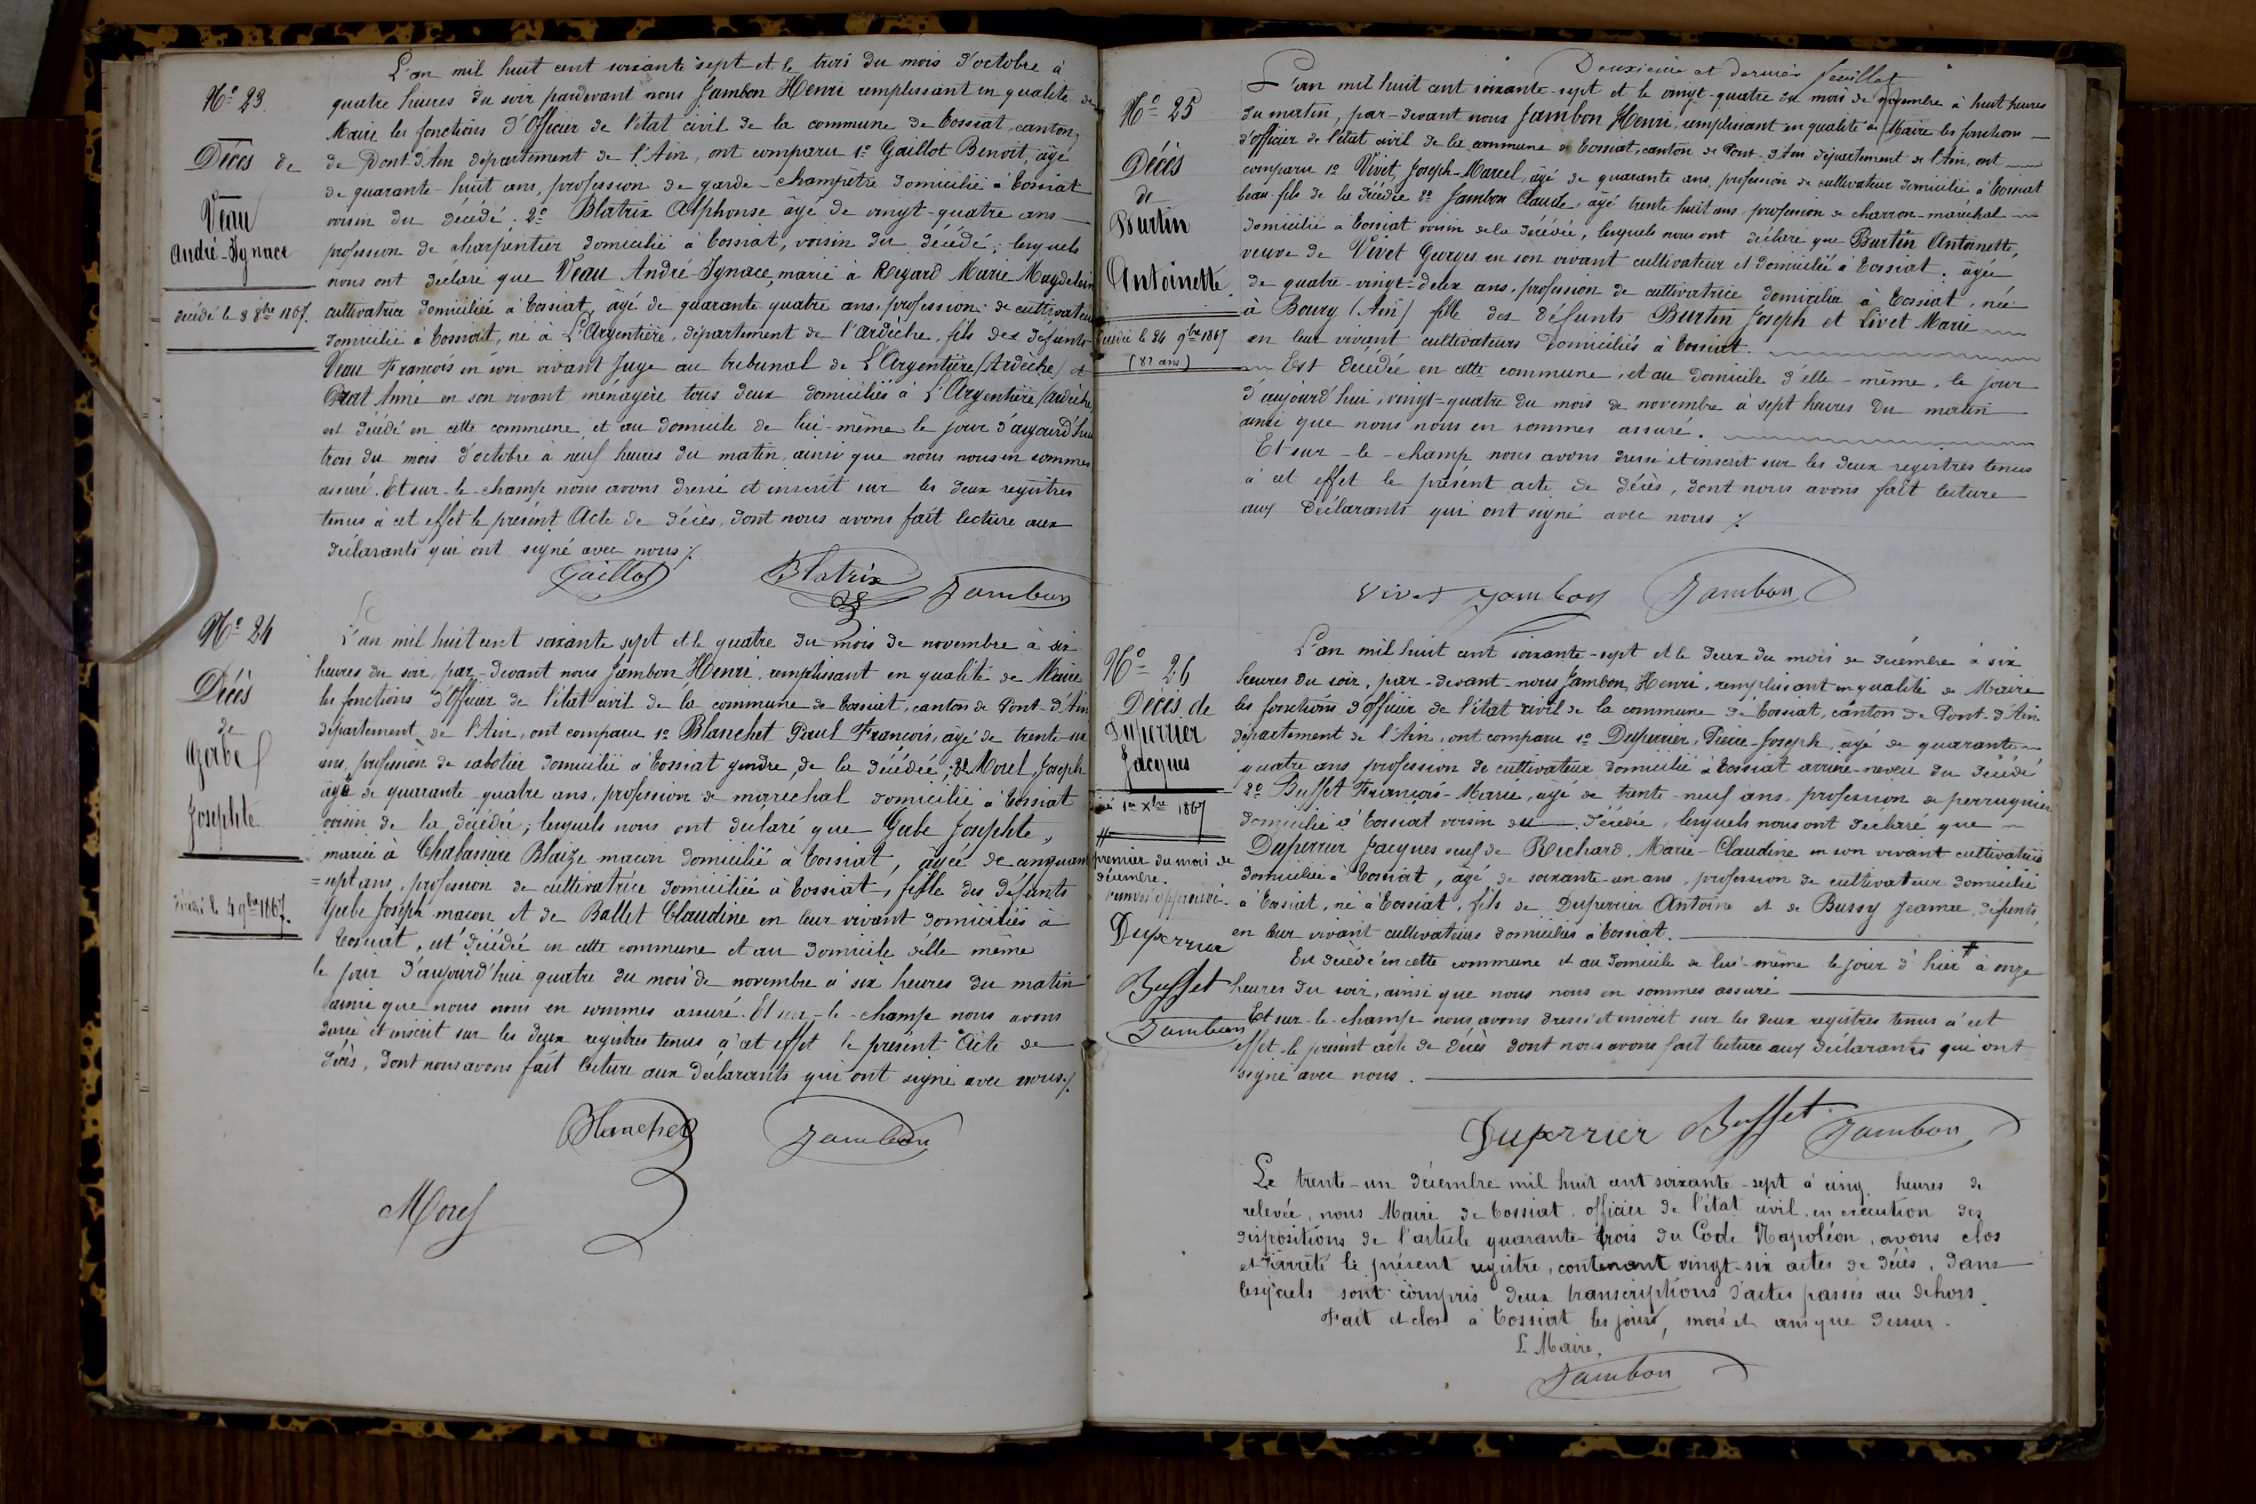 L'an mil huit cent soixante sept et le trois du mois d'octobre à
N° 23.
quatre heures du soir pardevant nous Jambon Henri remplissant en qualité de
Maire les fonctions d'Officier de l'état civil de la commune de Tossiat, canton
Décès de
de Pont-d'Ain département de l'Ain, ont comparu 1° Gaillot Benoit, âgé
de quarante-huit ans, profession de garde-champêtre domicilié à Tossiat
Veau
André-Ignace
voisin du décédé. 2° Blatrix Alphonse âgé de vingt-quatre ans
profession de charpentier domicilié à Tossiat, voisin du décédé; lesquels
nous ont déclaré que Veau André-Ignace, marié à Reyard Marie Magdelein
décédé le 3 8bre 1867.
cultivatrice domiciliée à Tossiat, âgé de quarante quatre ans, profession de cultivateur
domicilié à Tossiat, né à L'Argentière, département de l'ardèche, fils des défunts
Veau François en son vivant Juge au tribunal de L'Argentière (Ardèche) et
Prat Anne en son vivant ménagère tous deux domiciliés à L'Argentière (ardèche)
est décédé en cette commune et au domicile de lui-même le jour d'aujourd'hui
trois du mois d'octobre à neuf heures du matin, ainsi que nous nous en sommes
assuré. Et sur-le-champ nous avons dressé et inscrit sur les deux registres
tenus à cet effet le présent Acte de décès, dont nous avons fait lecture aux
déclarants qui ont signé avec nous ./.
Gaillot Blatrix Jambon
N° 24
L'an mil huit cent soixante sept et le quatre du mois de novembre à six
heures du soir, par-devant nous Jambon Henri, remplissant en qualité de Maire
Décès
de
Gerbe
Josephte
les fonctions d'Officier de l'état civil de la commune de Tossiat, canton de Pont-d'Ain
département de l'Ain, ont comparu 1° Blanchet Paul François, âgé de trente-un
ans, profession de sabotier domicilié à Tossiat gendre de la décédée; 2° Morel Joseph
âgé de quarante quatre ans, profession de maréchal domicilié à Tossiat
voisin de la décédée; lesquels nous ont déclaré que Gerbe Josephte,
mariée à Chabassure Blaize maçon domicilié à Tossiat, âgée de cinquante
=sept ans, profession de cultivatrice domiciliée à Tossiat, fille des défunts
décédée le 4 9bre 1867.
Gerbe Joseph maçon et de Ballet Claudine en leur vivant domiciliés à
Tossiat, est décédée en cette commune et au domicile d'elle même
le jour d'aujourd'hui quatre du mois de novembre à six heures du matin
ainsi que nous nous en sommes assuré. Et sur-le-champ nous avons
dressé et inscrit sur les deux registres tenus à cet effet le présent Acte de
décès, dont nous avons fait lecture aux déclarants qui ont signé avec nous ./.
Blanchet Jambon
Morel
Deuxième et dernier feuillet
N° 25
L'an mil huit cent soixante-sept et le vingt-quatre du mois de novembre à huit heures
du matin, par-devant nous Jambon Henri, remplissant en qualité de Maire les fonctions
d'officier de l'état civil de la commune de Tossiat, canton de Pont-d'Ain département de l'Ain, ont
Décès
de
Burtin
Antoinette
comparu 1° Vivet Joseph-Marcel, âgé de quarante ans, profession de cultivateur domicilié à Tossiat
beau-fils de la décédée 2° Jambon Claude, âgé trente huit ans, profession de charron-maréchal
domicilié à Tossiat voisin de la décédée, lesquels nous ont déclaré que Burtin Antoinette,
veuve de Vivet Georges en son vivant cultivateur et domicilié à Tossiat, âgée
de quatre-vingt-deux ans, profession de cultivatrice domiciliée à Tossiat, née
à Bourg (Ain) fille des défunts Burtin Joseph et Livet Marie
décédée le 24 9bre 1867
(82 ans)
en leur vivant cultivateurs domiciliés à Tossiat.
Est décédée en cette commune, et au domicile d'elle-même, le jour
d'aujourd'hui, vingt-quatre du mois de novembre à sept heures du matin
ainsi que nous nous en sommes assuré.
Et sur-le-champ nous avons dressé et inscrit sur les deux registres tenus
à cet effet le présent acte de décès, dont nous avons fait lecture
aux déclarants qui ont signé avec nous ./.
Vivet Jambon Jambon
N° 26
L'an mil huit cent soixante-sept et le deux du mois de décembre à six
heures du soir, par-devant-nous Jambon Henri, remplissant en qualité de Maire
Décès de
Duperrier
Jacques
les fonctions d'officier de l'état civil de la commune de Tossiat, canton de Pont-d'Ain
département de l'Ain, ont comparu 1° Duperrier, Pierre-Joseph, âgé de quarante
quatre ans profession de cultivateur domicilié à Tossiat arrière-neveu du décédé
2° Buffet François-Marie, âgé de trente-neuf ans, profession de perruquier
1er Xbre 1867
domicilié à Tossiat voisin du décédée, lesquels nous ont déclaré que
Duperrier Jacques veuf de Richard Marie-Claudine en son vivant cultivatrice
# premier du mois de
décembre.
renvoi approuvé.
domiciliée à Tossiat, âgé de soixante-un ans, profession de cultivateur domicilié
à Tossiat, né à Tossiat, fils de Duperrier Antoine et de Bussy Jeanne, défunts
en leur vivant cultivateurs domiciliés à Tossiat.
Duperrier
Buffet
Jambon
Est décédé en cette commune et au domicile de lui-même le jour d'hier # à onze
heures du soir, ainsi que nous nous en sommes assuré
Et sur-le-champ nous avons dressé et inscrit sur les deux registres tenus à cet
effet le présent acte de décès dont nous avons fait lecture aux déclarants qui ont
signé avec nous.
Duperrier Buffet Jambon
Le trente-un décembre mil huit cent soixante-sept à cinq heures de
relevée, nous Maire de Tossiat, officier de l'état civil, en exécution des
dispositions de l'article quarante-trois du Code Napoléon, avons clos
et arrêté le présent registre, contenant vingt-six actes de décès, dans
lesquels sont compris deux transcriptions d'actes passés au dehors.
Fait et clos à Tossiat les jours, mois et an que dessus.
L Maire,
Jambon